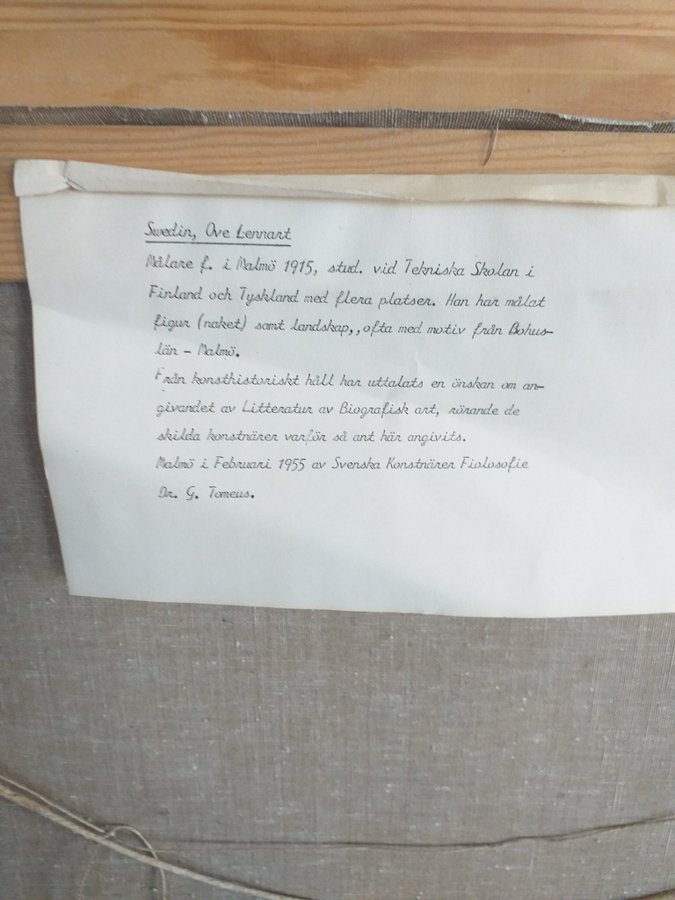 Swedin, Ove Lennart
Målare f. i Malmö 1915, stud. vid Tekniska Skolan i
Finland och Tyskland med flera platser. Han har målat
figur (naket) samt landskap,,ofta med motiv från Bohus-
län - Malmö.
Från konsthistoriskt håll har uttalats en önskan om an-
givandet av Litteratur av Biografisk art, rörande de
skilda konstnärer varför så ant här angivits.
Malmö i Februari 1955 av Svenska Konstnärer Fiolosofie
Dr. G. Tomeus.